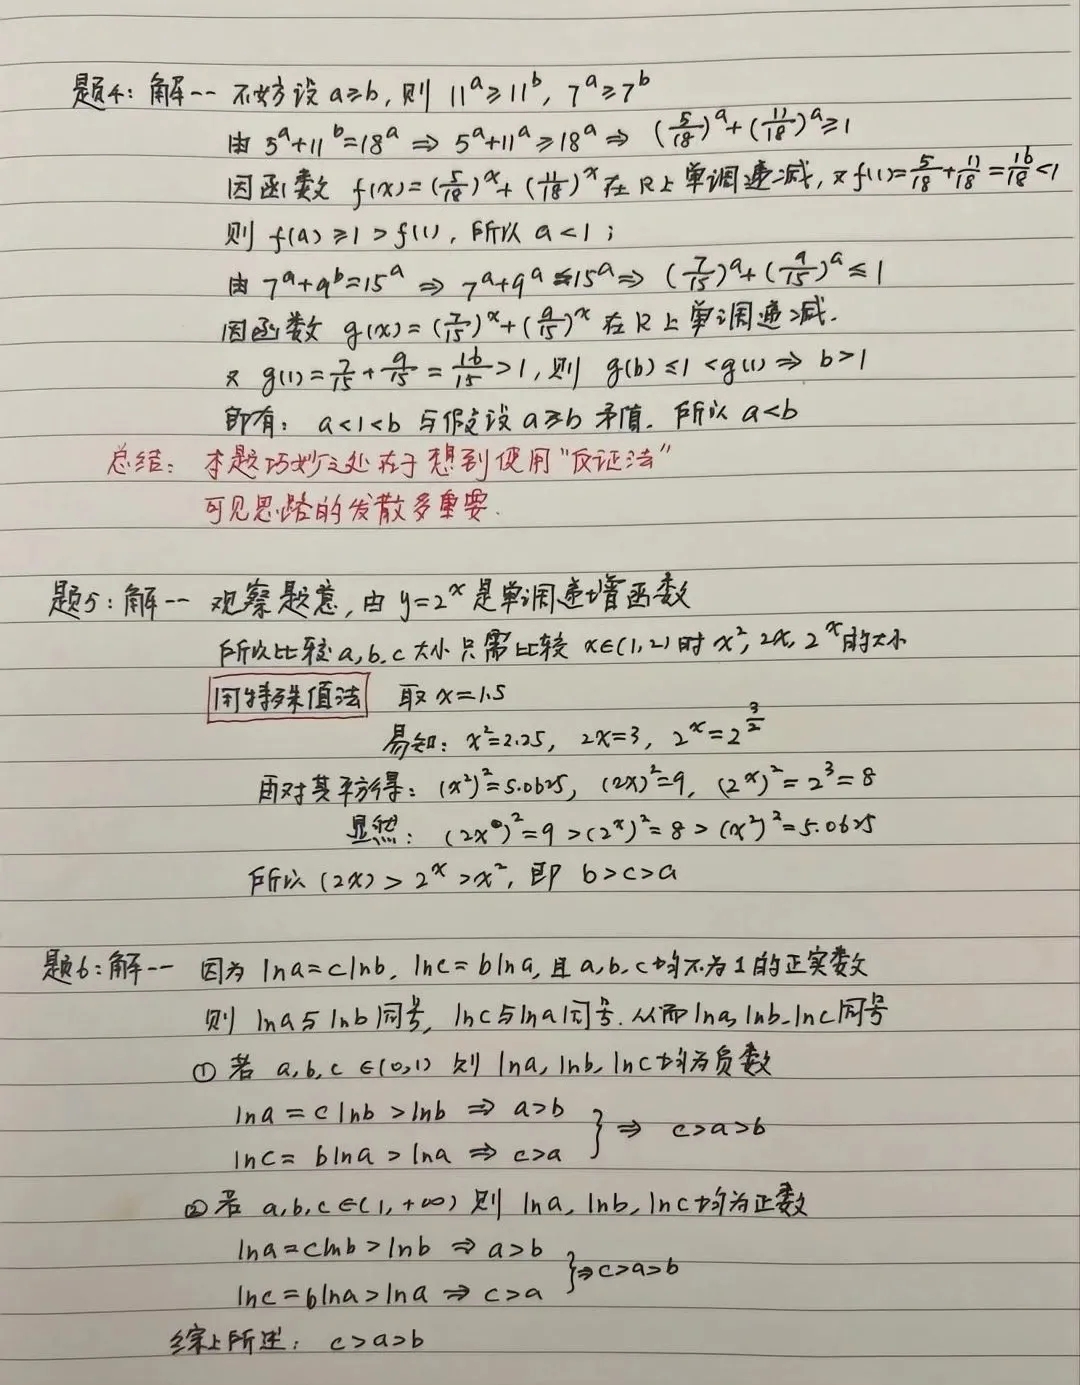 题4: 解-- 不妨设 a≥b, 则 11^a≥11^b, 7^a≥7^b
由 5^a+11^b=18^a ⇒ 5^a+11^a≥18^a ⇒ (5/18)^a+(11/18)^a≥1
因函数 f(x)=(5/18)^x+(11/18)^x 在 R上单调递减, 又 f(1)=5/18+11/18=16/18<1
则 f(a)≥1>f(1), 所以 a<1;
由 7^a+9^b=15^a ⇒ 7^a+9^a≤15^a ⇒ (7/15)^a+(9/15)^a≤1
因函数 g(x)=(7/15)^x+(9/15)^x 在 R 上单调递减.
又 g(1)=7/15+9/15=16/15>1, 则 g(b)≤1<g(1) ⇒ b>1
即有: a<1<b 与假设 a≥b 矛盾. 所以 a<b
总结: 本题巧妙之处在于想到使用“反证法”
可见思路的发散多重要.
题5: 解-- 观察题意, 由 y=2^x 是单调递增函数
所以比较 a, b, c 大小只需比较 x∈(1,2)时 x², 2x, 2^x的大小
用特殊值法 取 x=1.5
易知: x²=2.25, 2x=3, 2^x=2^(3/2)
再对其平方得: (x²)²=5.0625, (2x)²=9, (2^x)²=2³=8
显然: (2x)²=9>(2^x)²=8>(x²)²=5.0625
所以 (2x)>2^x>x², 即 b>c>a
题6: 解-- 因为 lna=clnb, lnc=blna, 且 a, b, c均不为1的正实数
则 lna与lnb同号, lnc与lna同号. 从而lna, lnb, lnc同号
① 若 a, b, c ∈(0,1) 则 lna, lnb, lnc均为负数
lna=clnb>lnb ⇒ a>b
} ⇒ c>a>b
lnc=blna>lna ⇒ c>a
② 若 a, b, c∈(1, +∞) 则 lna, lnb, lnc均为正数
lna=clnb>lnb ⇒ a>b
}⇒c>a>b
lnc=blna>lna ⇒ c>a
综上所述: c>a>b